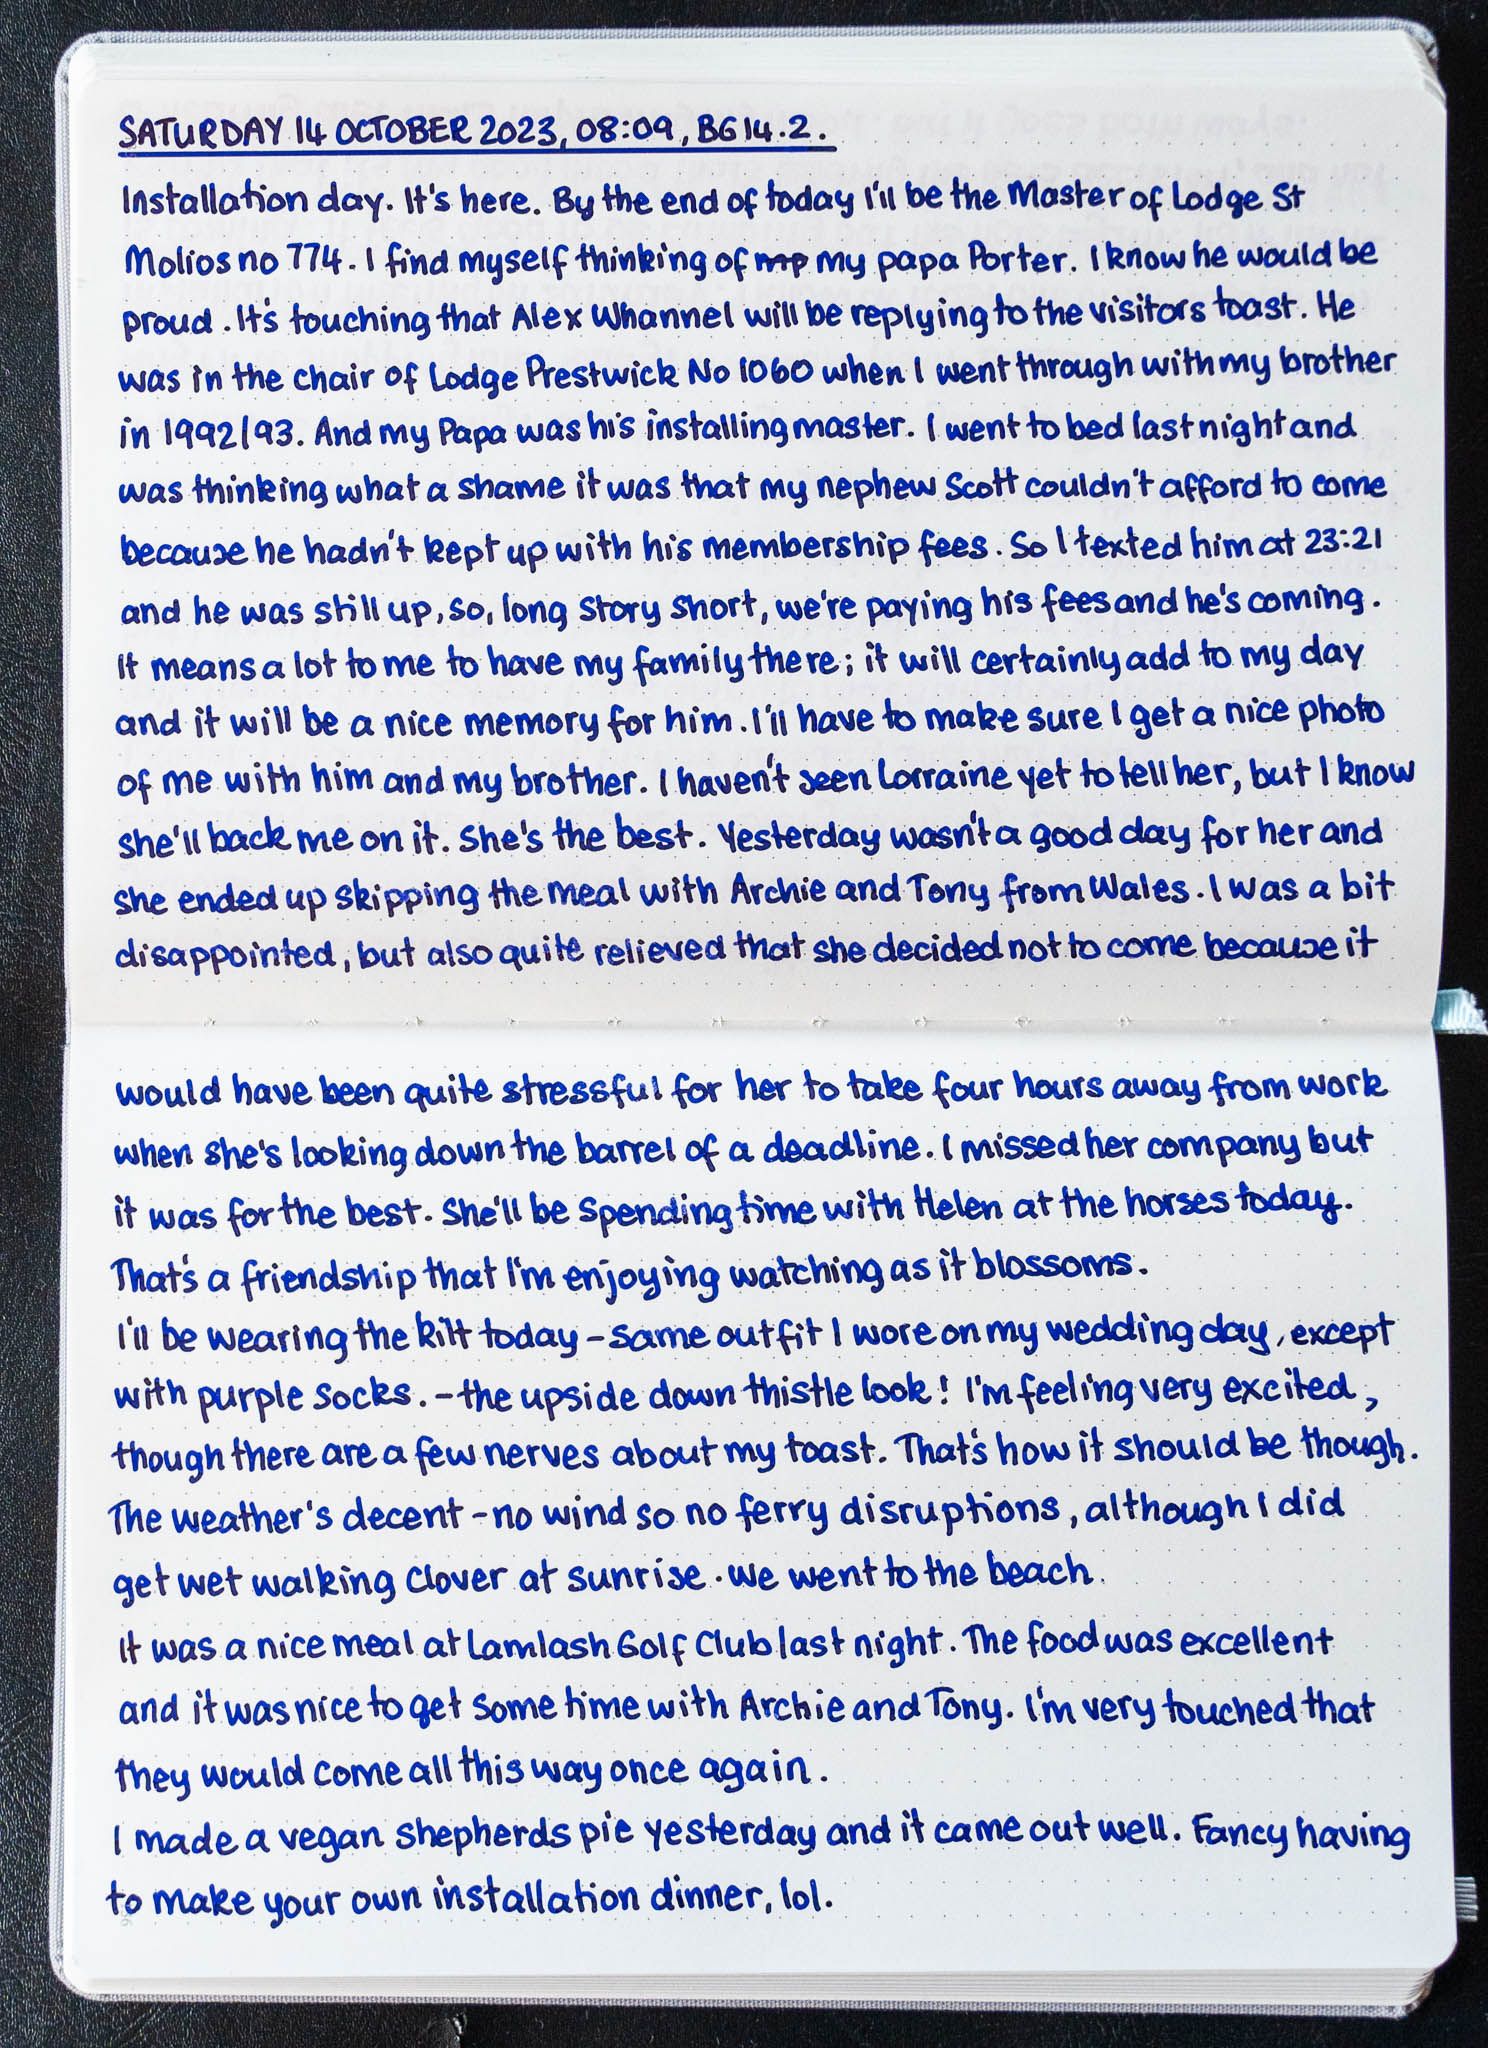 SATURDAY 14 OCTOBER 2023, 08:09, BG 14.2.
Installation day. It's here. By the end of today I'll be the Master of Lodge St
Molios no 774. I find myself thinking of mp my papa Porter. I know he would be
proud. It's touching that Alex Whannel will be replying to the visitors toast. He
was in the chair of Lodge Prestwick No 1060 when I went through with my brother
in 1992/93. And my Papa was his installing master. I went to bed last night and
was thinking what a shame it was that my nephew Scott couldn't afford to come
because he hadn't kept up with his membership fees. So I texted him at 23:21
and he was still up, so, long story short, we're paying his fees and he's coming.
It means a lot to me to have my family there; it will certainly add to my day
and it will be a nice memory for him. I'll have to make sure I get a nice photo
of me with him and my brother. I haven't seen Lorraine yet to tell her, but I know
she'll back me on it. She's the best. Yesterday wasn't a good day for her and
she ended up skipping the meal with Archie and Tony from Wales. I was a bit
disappointed, but also quite relieved that she decided not to come because it
would have been quite stressful for her to take four hours away from work
when she's looking down the barrel of a deadline. I missed her company but
it was for the best. She'll be spending time with Helen at the horses today.
That's a friendship that I'm enjoying watching as it blossoms.
I'll be wearing the kilt today - same outfit I wore on my wedding day, except
with purple socks. - the upside down thistle look! I'm feeling very excited,
though there are a few nerves about my toast. That's how it should be though.
The weather's decent - no wind so no ferry disruptions, although I did
get wet walking Clover at sunrise. We went to the beach.
It was a nice meal at Lamlash Golf Club last night. The food was excellent
and it was nice to get some time with Archie and Tony. I'm very touched that
they would come all this way once again.
I made a vegan shepherds pie yesterday and it came out well. Fancy having
to make your own installation dinner, lol.